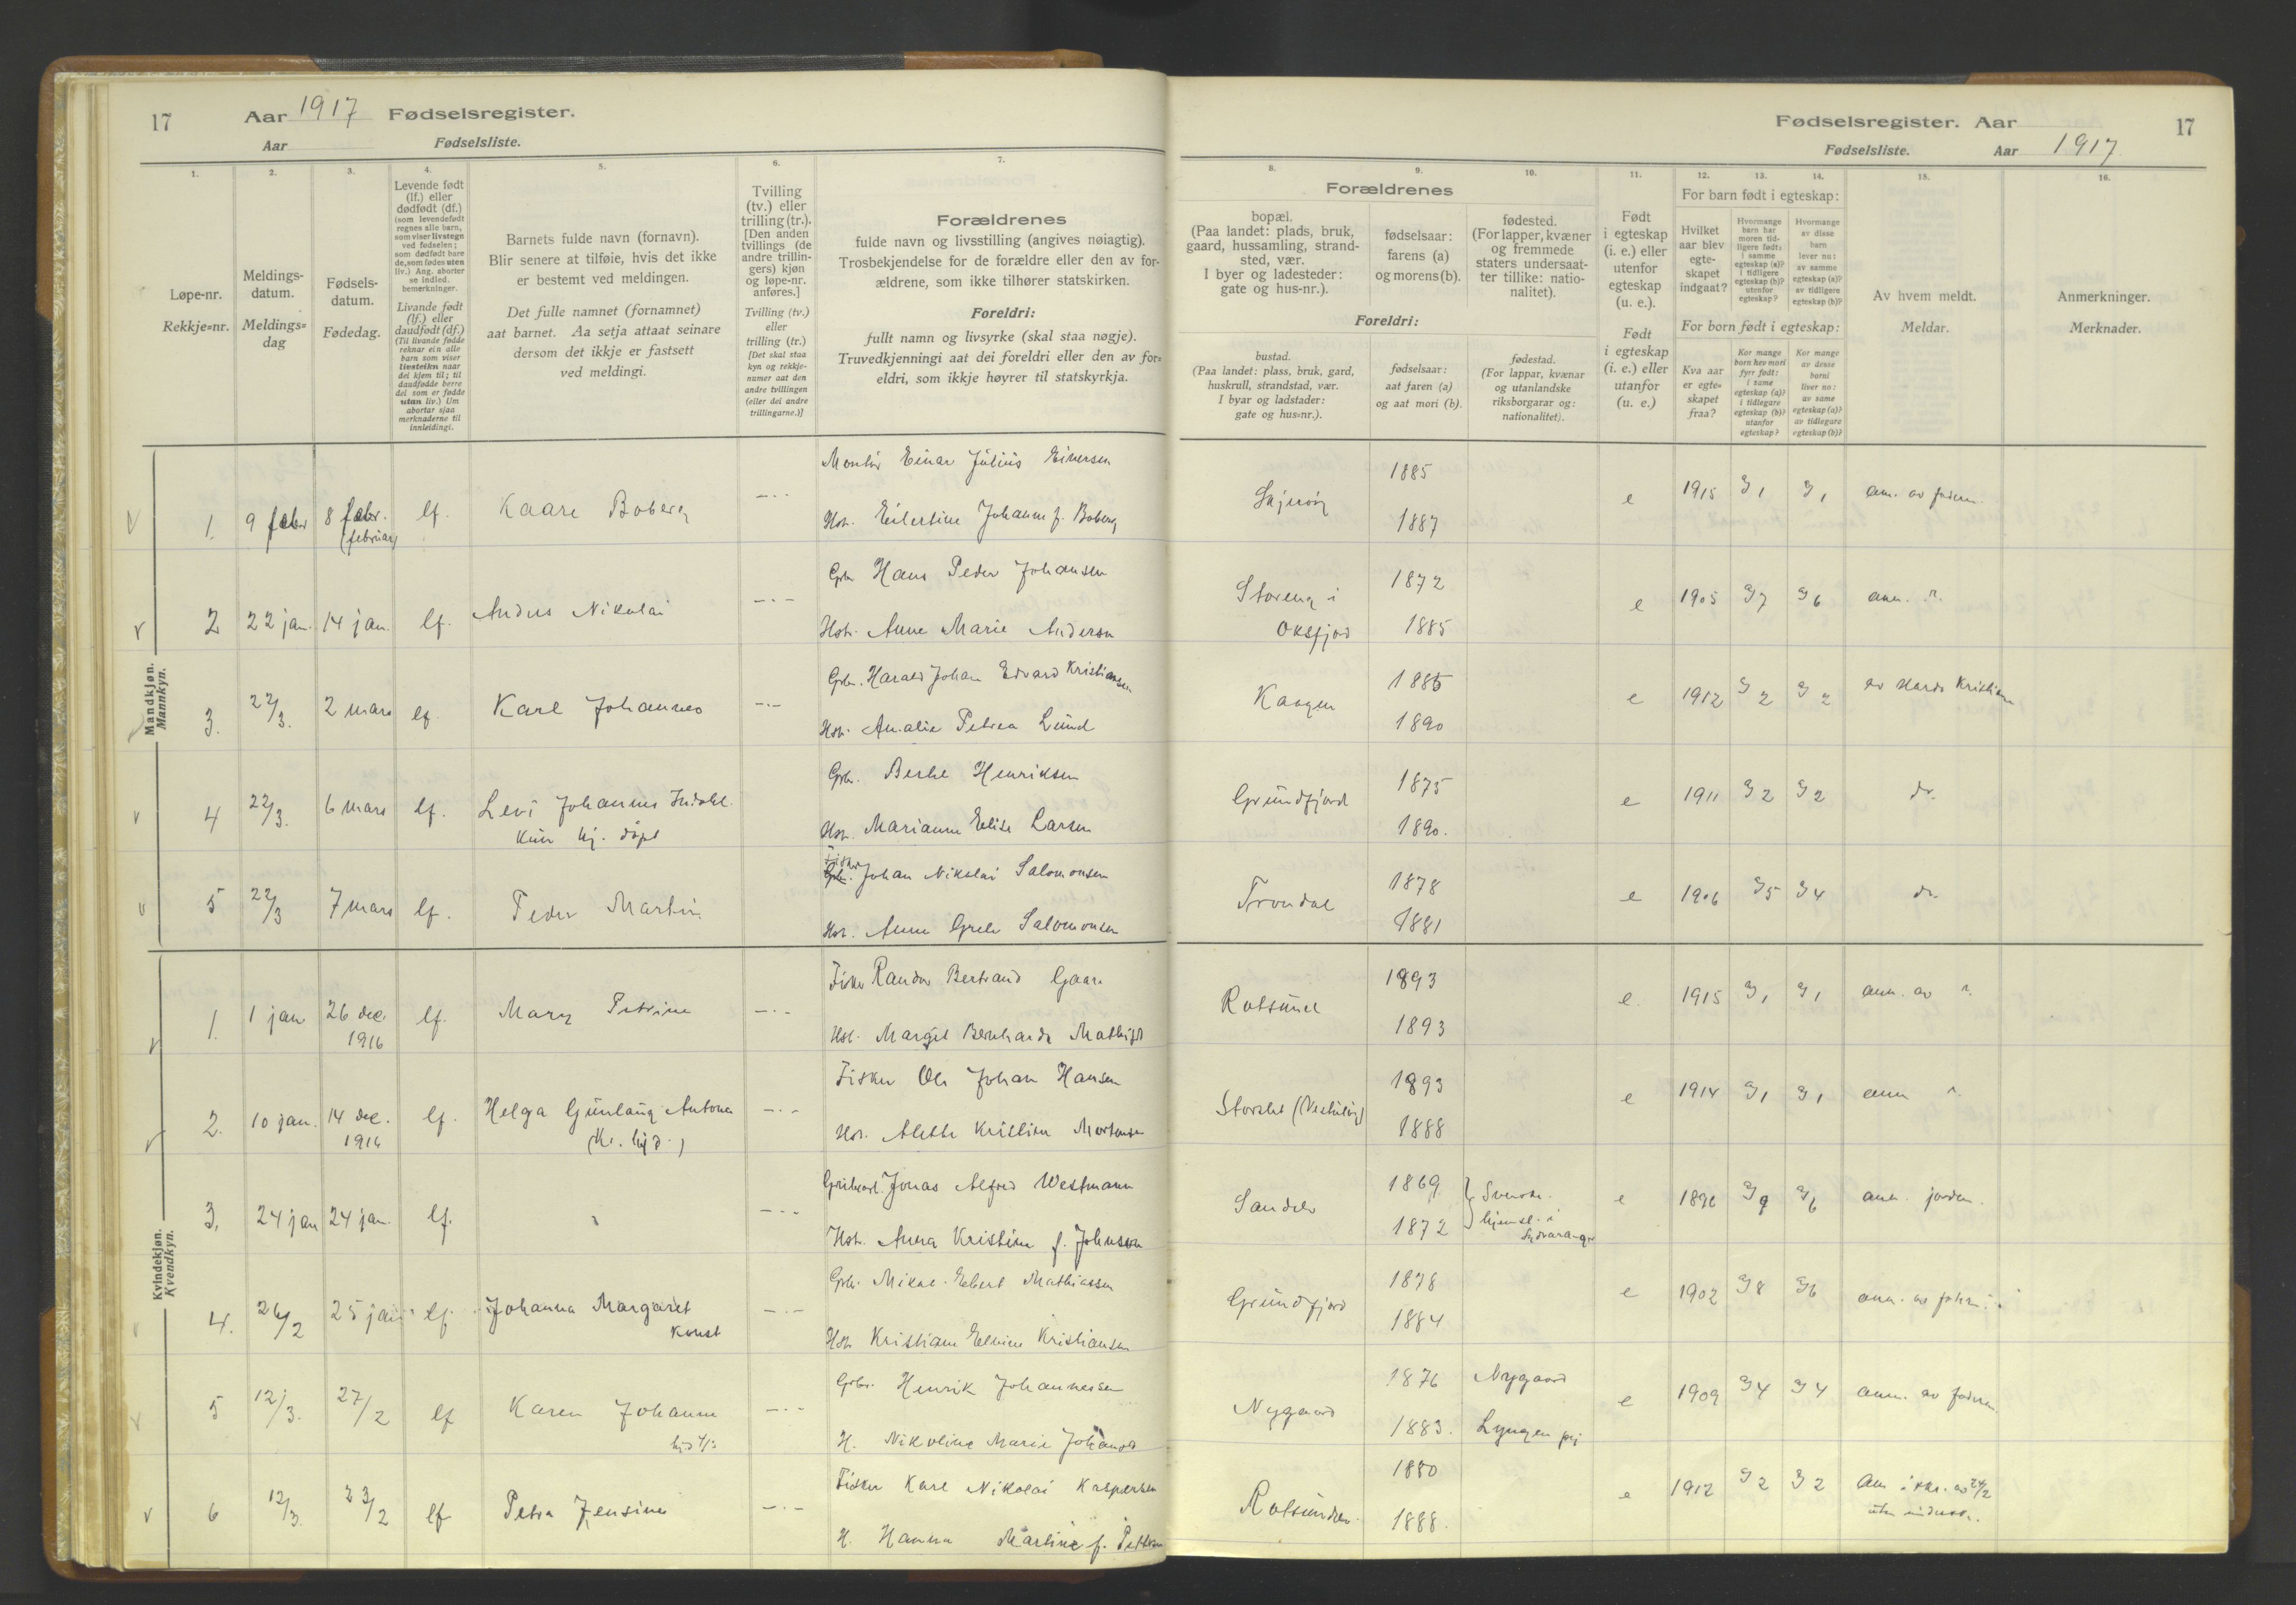 17
Aar 1917 Fødselsregister.
Aar Fødselsliste.
1.
2.
3.
4.
5.
6.
7.
Løpe-nr.
Rekkje=nr.
Meldings-
datum.
Meldings=
dag
Fødsels-
datum.
Fødedag.
Levende født
(lf.) eller
dødfødt (df.)
(som levendefødt
regnes alle barn,
som viser livstegn
ved fødselen;
som dødfødt bare
de, som fødes uten
liv.) Ang. aborter
se indled.
bemerkninger.
Livande født
(lf.) eller
daudfødt (df.)
(Til livande fødde
reknar ein alle
barn som viser
livsteikn naar
dei kjem til; til
daudfødde berre
dei som er fødde
utan liv.) Um
abortar sjaa
merknaderne til
innleidingi.
Barnets fulde navn (fornavn).
Blir senere at tilføie, hvis det ikke
er bestemt ved meldingen.
Det fulle namnet (fornamnet)
aat barnet. Aa setja attaat seinare
dersom det ikkje er fastsett
ved meldingi.
Tvilling
(tv.) eller
trilling (tr.).
[Den anden
tvillings (de
andre trillin-
gers) kjøn
og løpe-nr.
anføres.]
Tvilling (tv.)
eller
trilling (tr.)
[Det skal staa
kyn og rekkje-
numer aat den
andre tvillingen
(eller dei andre
trillingarne.)]
Forældrenes
fulde navn og livsstilling (angives nøiagtig).
Trosbekjendelse for de forældre eller den av for-
ældrene, som ikke tilhører statskirken.
Foreldri:
fullt namn og livsyrke (skal staa nøgje).
Truvedkjenningi aat dei foreldri eller den av for=
eldri, som ikkje høyrer til statskyrkja.
Mandkjøn.
Mannkyn.
1. 9 febr 8 febr. (februar) lf. Kaare Boberg —.—
Montør Einar Julius Eiversen
Hst. Eilertine Johanne f. Boberg
2 22 jan. 14 jan. lf. Andus Nikolai —.—
Gbr. Hans Peder Johansen
Hst. Anne Marie Andersen
3. 22/3. 2 mars lf. Karl Johannes —.—
Gbr. Harald Johan Edvard Kristiansen
Hst. Amalie Petrea Lund
4 22/3. 6 mars lf. Levi Johannes
kun hj. døpt
Gbr. Henriksen
Hst. Marianne Elise Larsen
5 22/3 7 mars lf. Peder Martin
Fisker Johan Nikolai Salomonsen
Hst. Anne Grete Salomonsen
Kvindekjøn.
Kvendkyn.
1. 1 jan 26 dec. 1916 lf. Mary Petrine —.—
Fisker Randor Bertrand Gaare
Hst. Margit Bernharda
2. 10 jan. 14 dec. 1916 lf. Helga Gunlaug Antona —.—
Fisker Ole Johan Hansen
Hst. Alette Kristine Mortensen
3. 24 jan 24 jan. lf. —.—
Jonas Alfred Westmann
Hst. Anna Kristine f. Johnsen
4. 26/2 25 jan lf. Johanna Margaret —.—
Gbr. Mikal Edvart Mathiassen
Hst Kristiane Elvine Kristiansen
5 12/3. 27/2 lf Karen Johanne —.—
Gbr. Henrik Johannessen
H. Nikoline Marie
6 12/3. 23/2 lf Petra Jensine —.—
Fisker Karl Nikolai Kaspersen
H. Hanna Martine f.
Fødselsregister. Aar 17
Fødselsliste. Aar 1917.
8.
9.
10.
11.
12.
13.
14.
15.
16.
Forældrenes
bopæl.
(Paa landet: plads, bruk,
gaard, hussamling, strand-
sted, vær.
I byer og ladesteder:
gate og hus-nr.).
fødselsaar:
farens (a)
og morens (b).
fødested.
(For lapper, kvæner
og fremmede
staters undersaat-
ter tillike: natio-
nalitet).
Foreldri:
bustad.
(Paa landet: plass, bruk, gard,
huskrull, strandstad, vær.
I byar og ladstader:
gate og hus=nr.).
fødselsaar:
aat faren (a)
og aat mori (b).
fødestad.
(For lappar, kvænar
og utanlandske
riksborgarar og:
nationalitet).
Født
i egteskap
(i. e.) eller
utenfor
egteskap
(u. e.).
Født
i egteskap
(i. e.) eller
utanfor
(u. e.)
For barn født i egteskap:
Hvilket
aar blev
egte-
skapet
indgaat?
Hvormange
barn har
moren tid-
ligere født:
i samme
egteskap (a)?
i tidligere
egteskap (b)?
utenfor
egteskap?
Hvormange
av disse
barn
lever nu:
av samme
egteskap (a)?
av tidligere
egteskap (b)?
For born født i egteskap:
Kva aar
er egte=
skapet
fraa?
Kor mange
born hev mori
fyrr født:
i same
egteskap (a)?
i tidlegare
egteskap (b)?
utanfor
egteskap?
Kor mange
av desse
borni
liver no:
av same
egteskap (a)?
av tidlegare
egteskap (b)?
Av hvem meldt.
Meldar.
Anmerkninger.
Merknader.
Skjervøy 1885 1887 e 1915 1 1 am. av faderen
Storeng i Oksfjord 1872 1885 e 1905 7 6 anm.
Kaagen 1885 1890 e 1912 2 2 av Harald Kristiansen
Grundfjord 1875 1890. e 1911 2 2 do.
Trondal 1878 1881 e 1906 5 4 do.
Rotsund 1893 1893 e. 1915 1 1 anm. av
Storslet 1893 1888 e 1914 1 1 anm
1869 1872 Svenske. e 1896 9 6 anm. jordm.
Grundfjord 1878 1884 e 1902 8 6 anm. av
Nygaard 1876 1883. Nygaard Lyngen pgj e 1909 4 4 anm. av faderen
1880 1888. e 1912 2 2